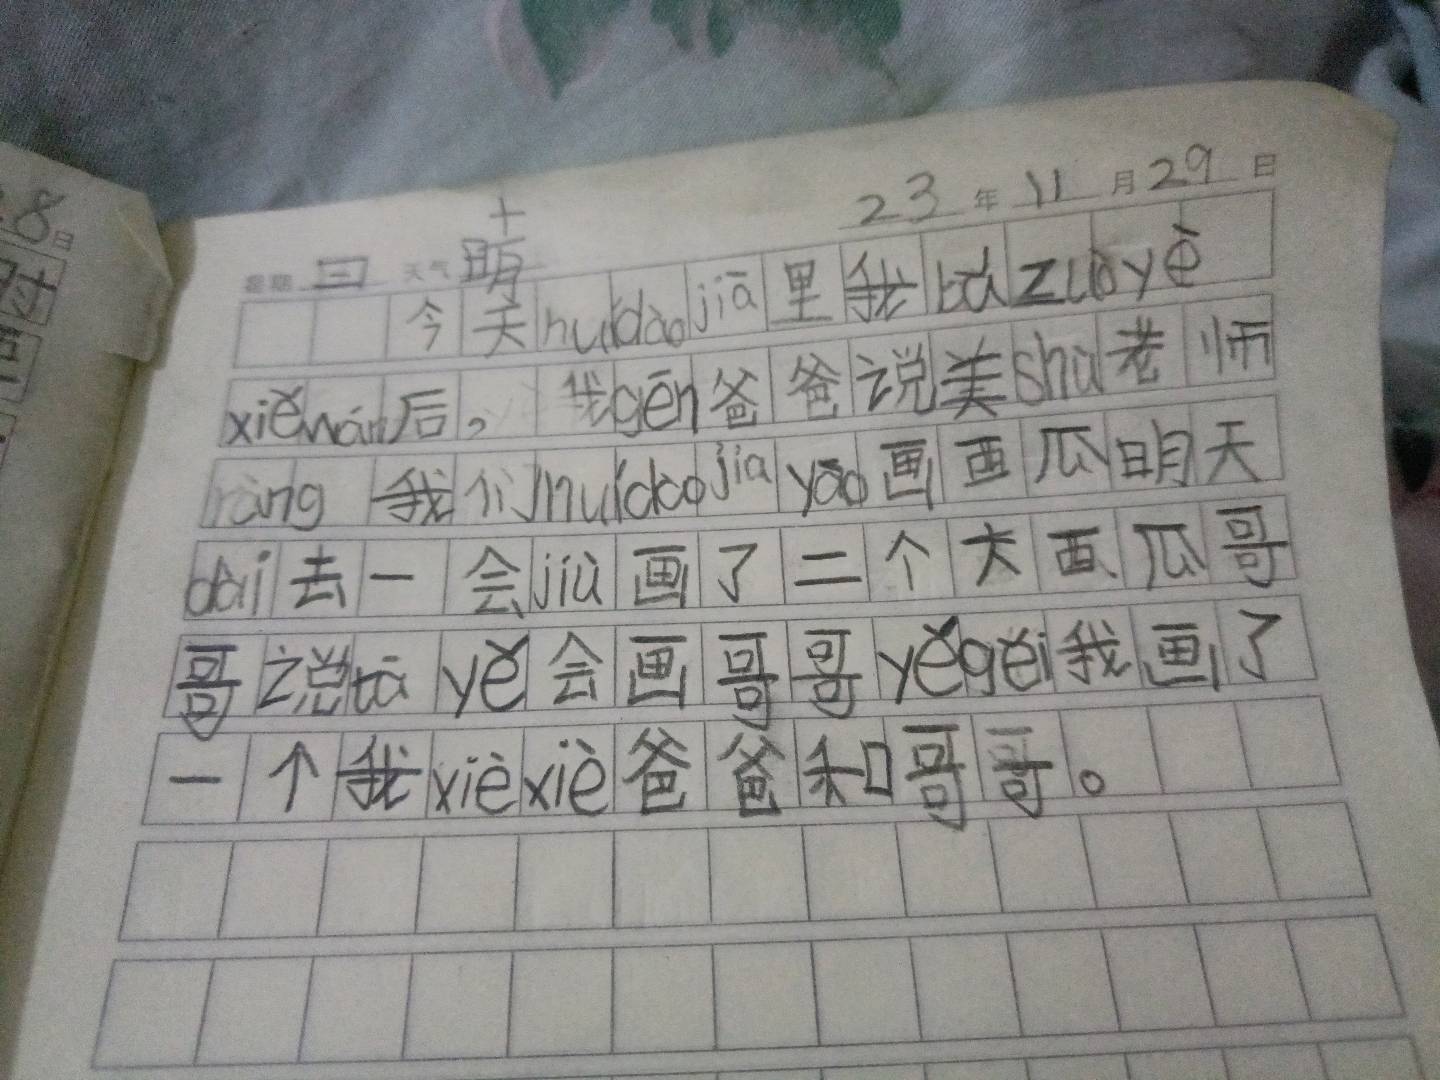 8日
23年11月29日
星期三 天气晴
今天huídào jiā里我bǎ zuò yè
xiě wán后，我gēn爸爸说美shù老师
ràng我们huídào jiā yāo画西瓜明天
dài去一会jiù画了二个大西瓜哥
哥说tā yě会画哥哥yě gěi我画了
一个我xiè xiè爸爸和哥哥。